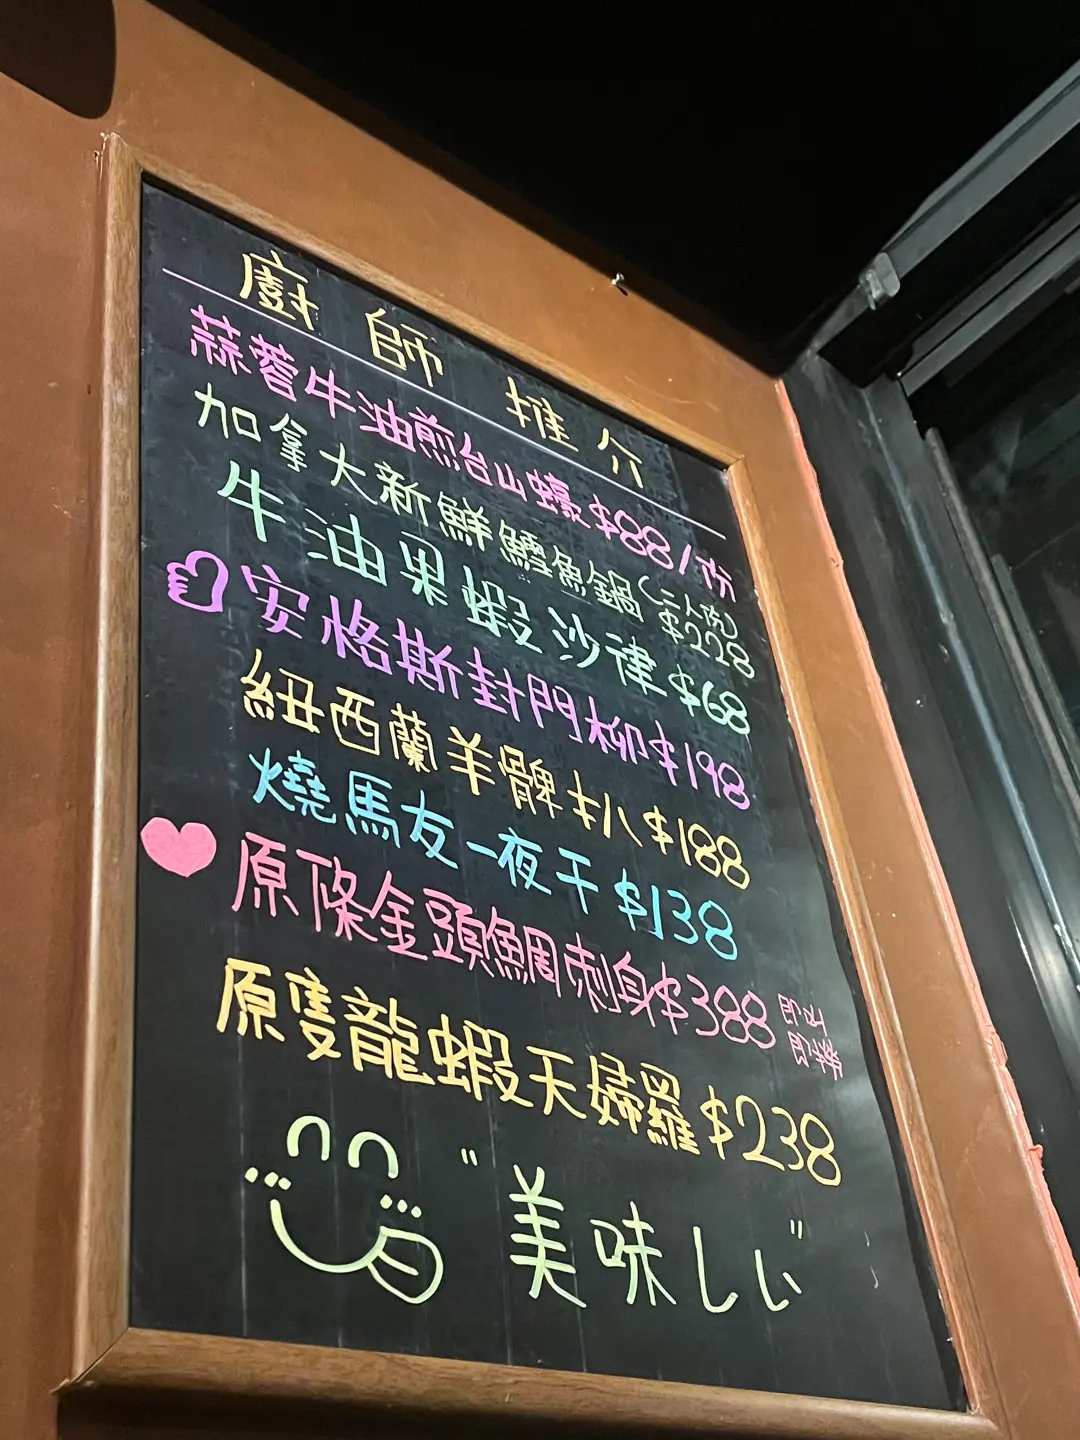 廚師推介
蒜蓉牛油煎台山蠔$88/份
加拿大新鮮鱈魚鍋(二人兜)
$228
牛油果蝦沙律$68
安格斯封門柳$198
紐西蘭羊髀扒$188
燒馬友一夜干$138
原條金頭鯛刺身$388
即劏
即撈
原隻龍蝦天婦羅$238
"美味しい"